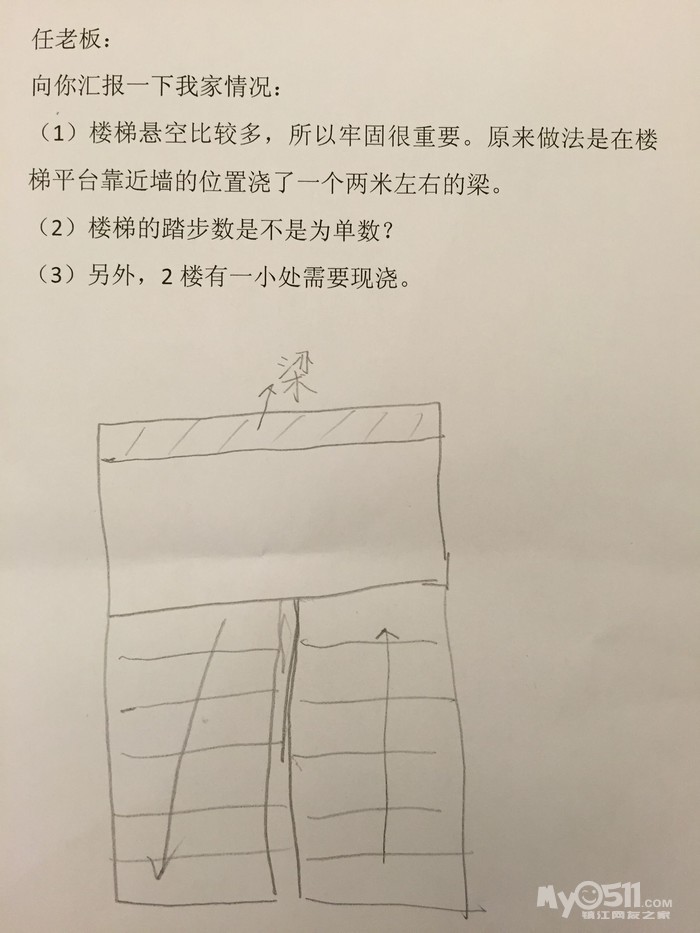 任老板：
向你汇报一下我家情况：
（1）楼梯悬空比较多，所以牢固很重要。原来做法是在楼
梯平台靠近墙的位置浇了一个两米左右的梁。
（2）楼梯的踏步数是不是为单数？
（3）另外，2 楼有一小处需要现浇。
梁
My0511.COM
镇江网友之家